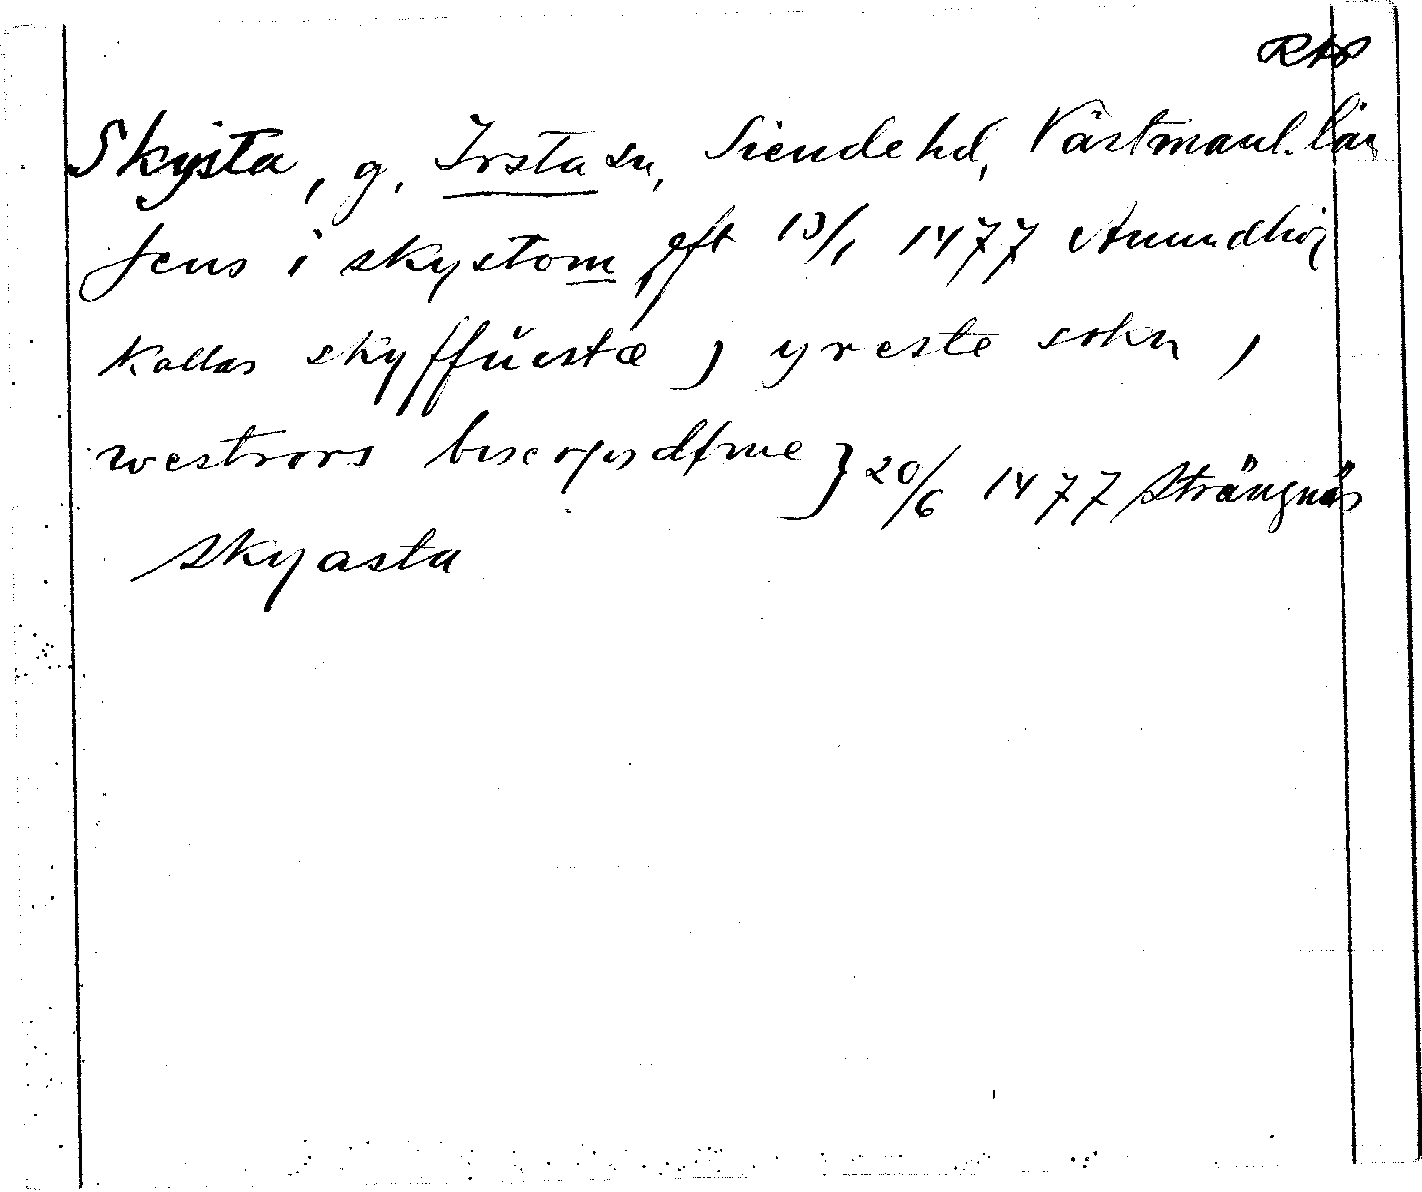 RAP
Skysta, g, Irsta sn, Siende hd, Västmanl. län
Jens i skystom, eft 13/1 1477 Anundhög
Kallas skyffuestæ, yreste sokn,
westrors } 20/6 1477 Strängnäs
skyasta